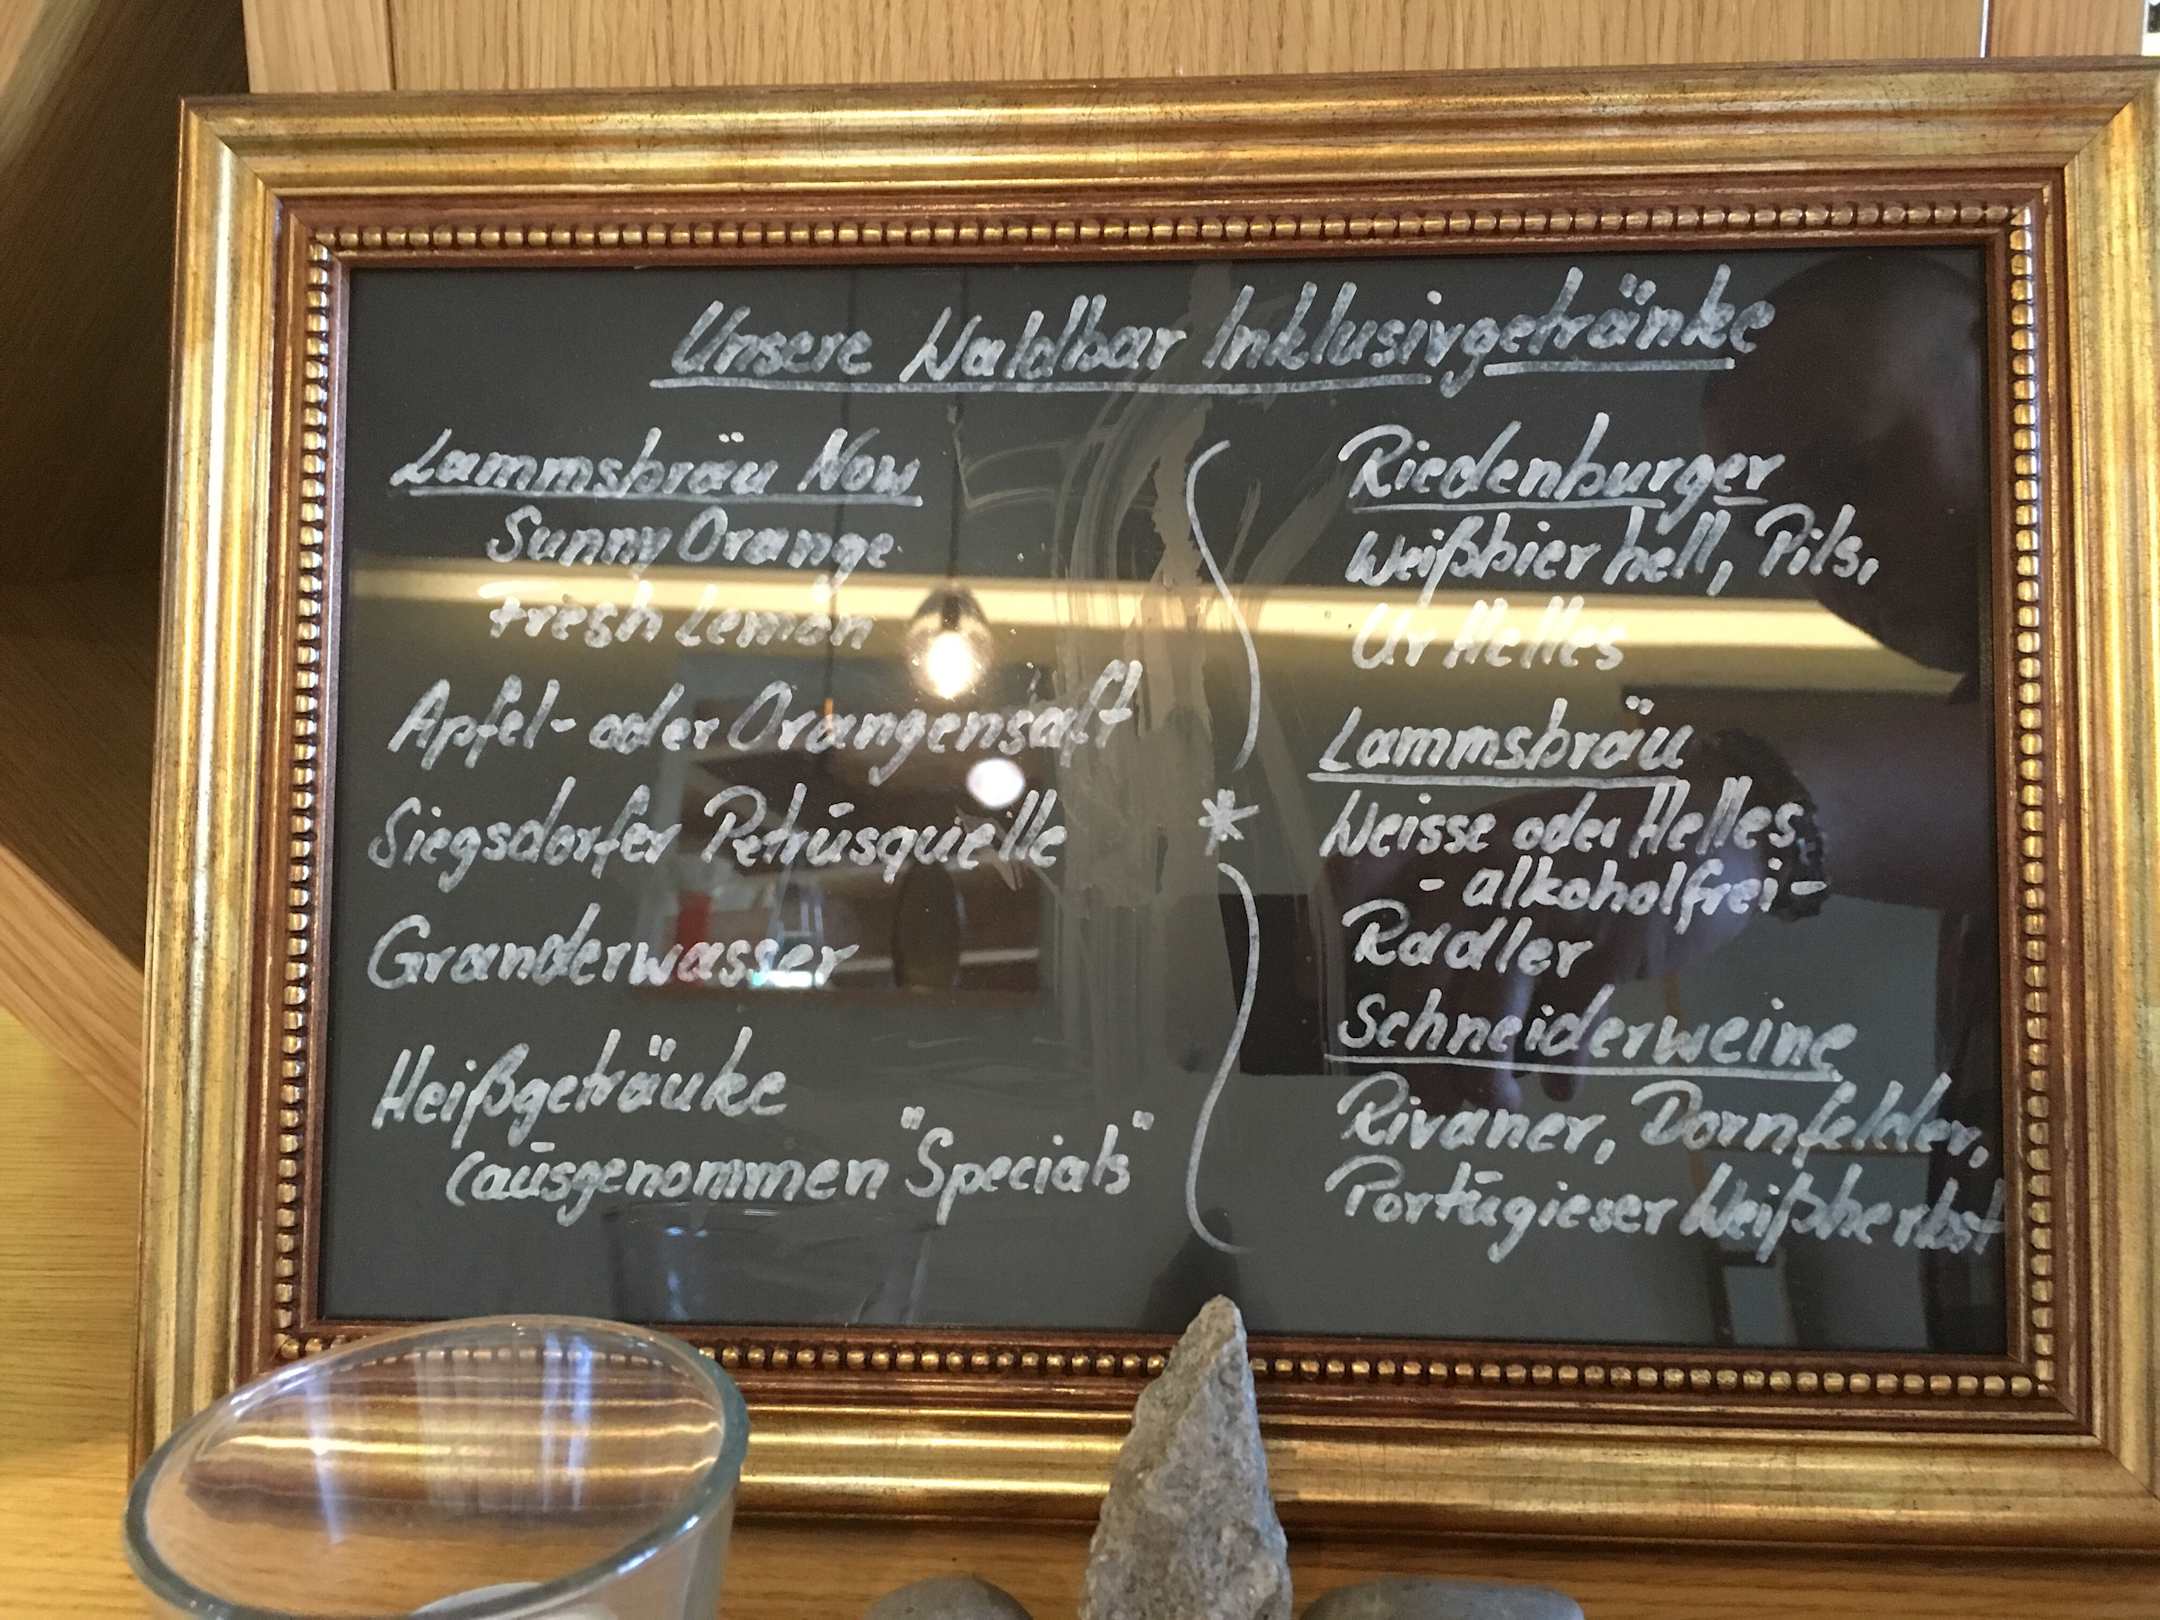 Unsere Waldbar Inklusivgetränke
Lammsbräu Now
Sunny Orange
Fresh Lemon
Apfel- oder Orangensaft
Siegsdorfer Petrusquelle
Granderwasser
Heißgetränke
(ausgenommen "Specials"
*
Riedenburger
Weißbier hell, Pils,
Ur Helles
Lammsbräu
Weisse oder Helles
- alkoholfrei -
Radler
Schneiderweine
Rivaner, Dornfelder,
Portugieser Weißherbst